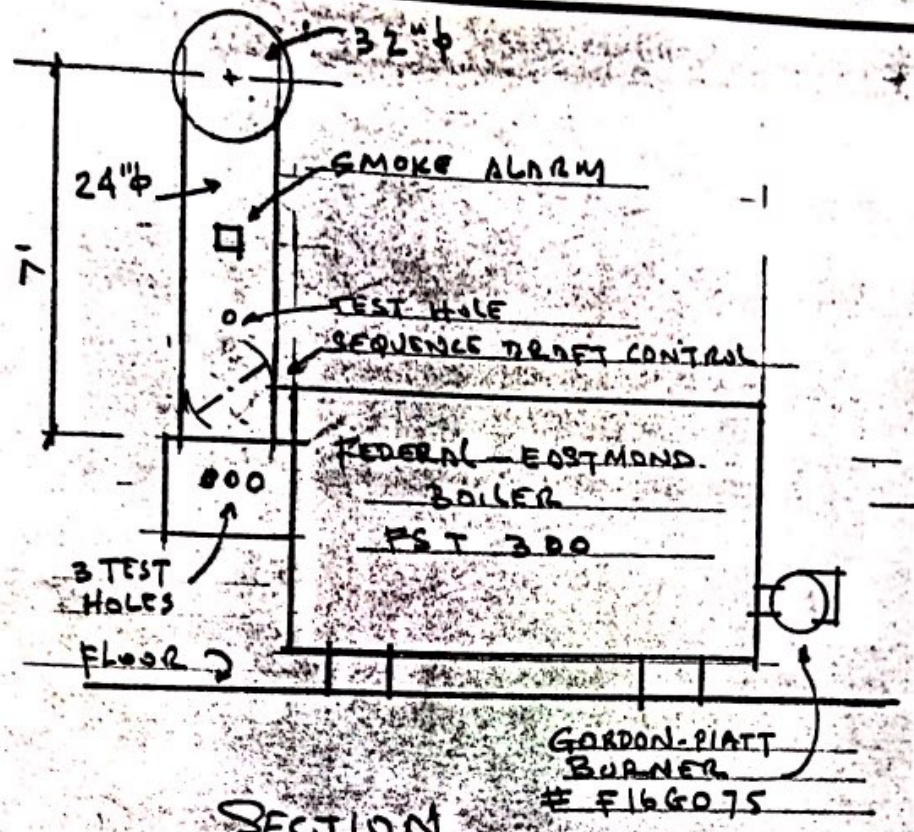 32"ϕ
24"ϕ
SMOKE ALARM
7'
TEST HOLE
SEQUENCE DRAFT CONTROL
FEDERAL-EASTMOND.
BOILER
FST 300
3 TEST
HOLES
FLOOR
GORDON-PIATT
BURNER
# F16GO75
SECTION